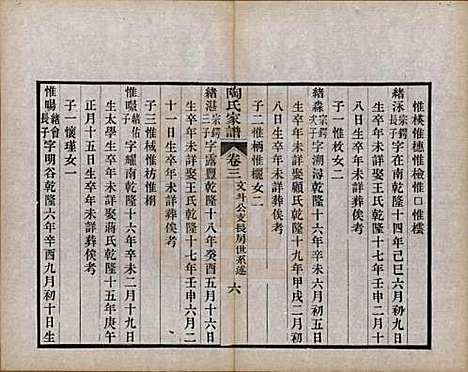 惟模惟穗惟檢惟口惟檬
緒泳宗鍔長子字在南乾隆十四年己巳六月初九日
生卒年未詳娶王氏乾隆十七年壬申六月初
八日生卒年未詳葬俟考
子一惟枚女二
緒淼宗鍔次子字溯潯乾隆十六年辛未六月初五日
生卒年未詳娶顧氏乾隆十九年甲戌二月初
八日生卒年未詳葬俟考
子二惟柄惟欐女二
陶氏家譜 卷三 文斗公支長房世系述 六
緒湛宗鍔三子字露豐乾隆十八年癸酉五月十六日
生卒年未詳娶王氏乾隆十七年壬申六月二
十一日生卒年未詳葬俟考
子三惟棫惟枋惟榈
惟啜緒佑子字耀南乾隆十六年辛未二月十九日
生太學生卒年未詳娶蔣氏乾隆十五年庚午
正月十五日生卒年未詳葬俟考
子一懷瑾女一
惟暘緒會長子字明谷乾隆六年辛酉九月初十日生